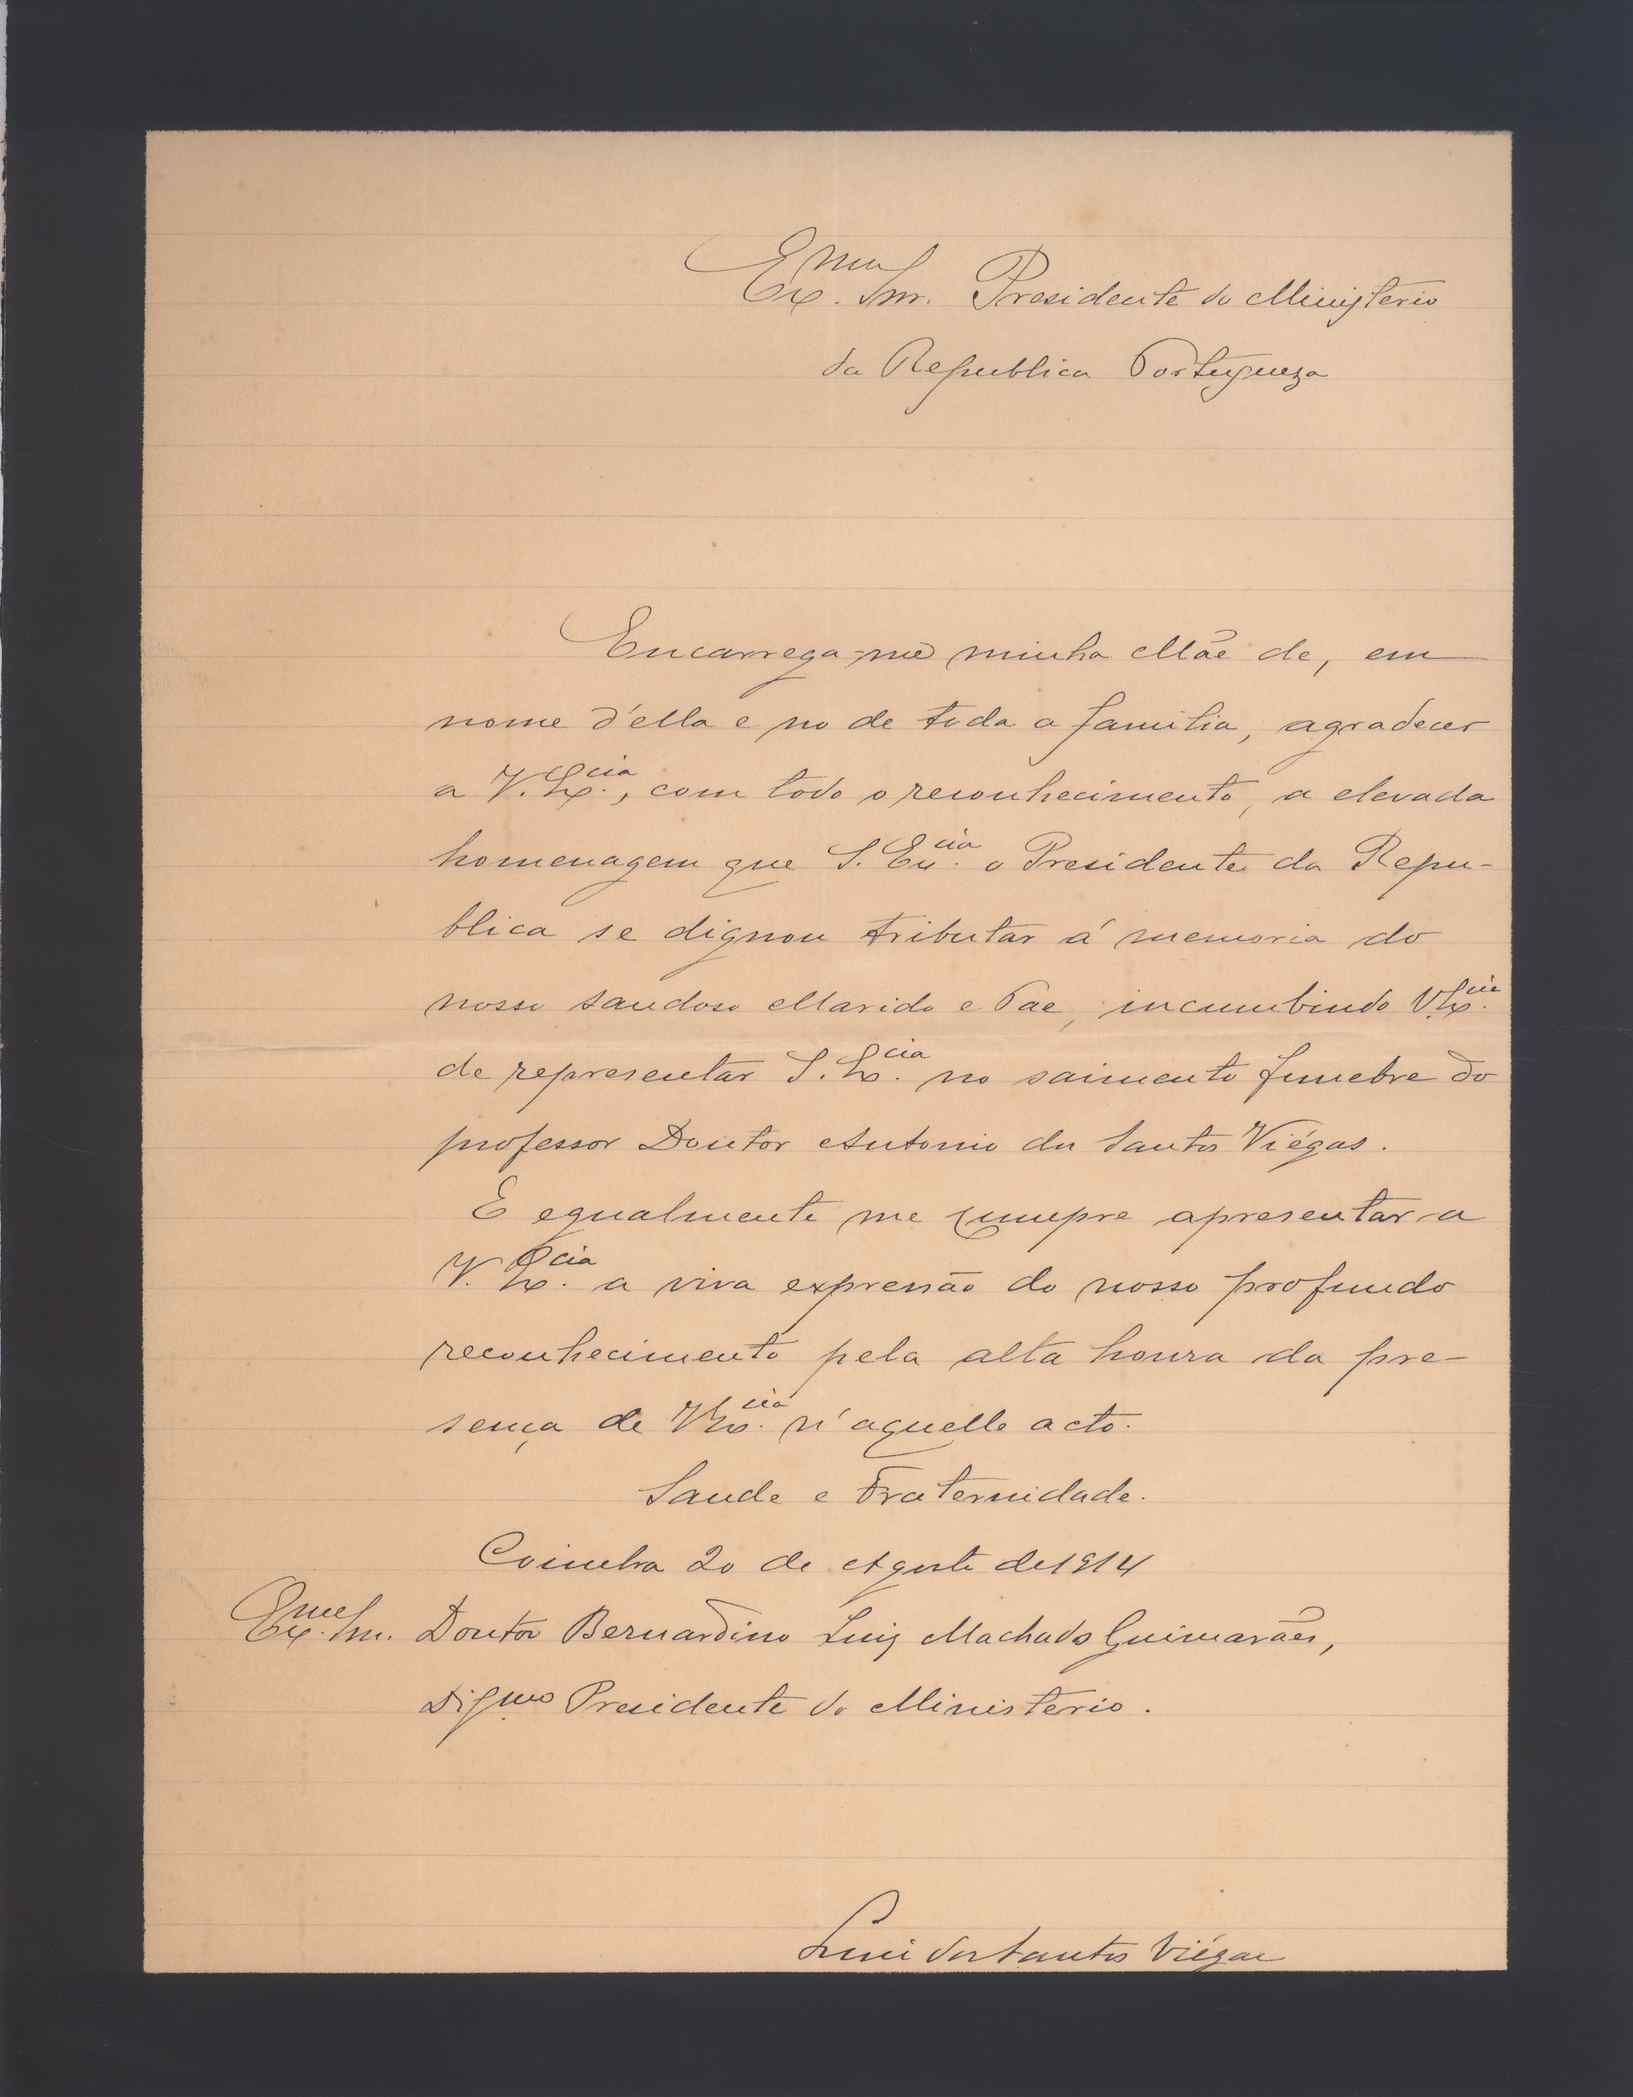 Ex.mo Snr. Presidente do Ministerio
da Republica Portugueza
Encarrega-me minha Mãe de, em
nome d'ella e no de toda a familia, agradecer
a V. Ex.cia, com todo o reconhecimento, a elevada
homenagem que S. Ex.cia o Presidente da Repu-
blica se dignou tributar á memoria do
nosso saudoso Marido e Pae, incumbindo V. Ex.cia
de representar S. Ex.cia no saimento funebre do
professor Doutor Antonio dos Santos Viégas.
E egualmente me cumpre apresentar a
V. Ex.cia a viva expressão do nosso profundo
reconhecimento pela alta honra da pre-
sença de V. Ex.cia n'aquelle acto.
Saude e Fraternidade.
Coimbra 20 de Agosto de 1914
Ex.mo Snr. Doutor Bernardino Luiz Machado Guimarães,
Dig.mo Presidente do Ministerio.
Luiz dos Santos Viégas